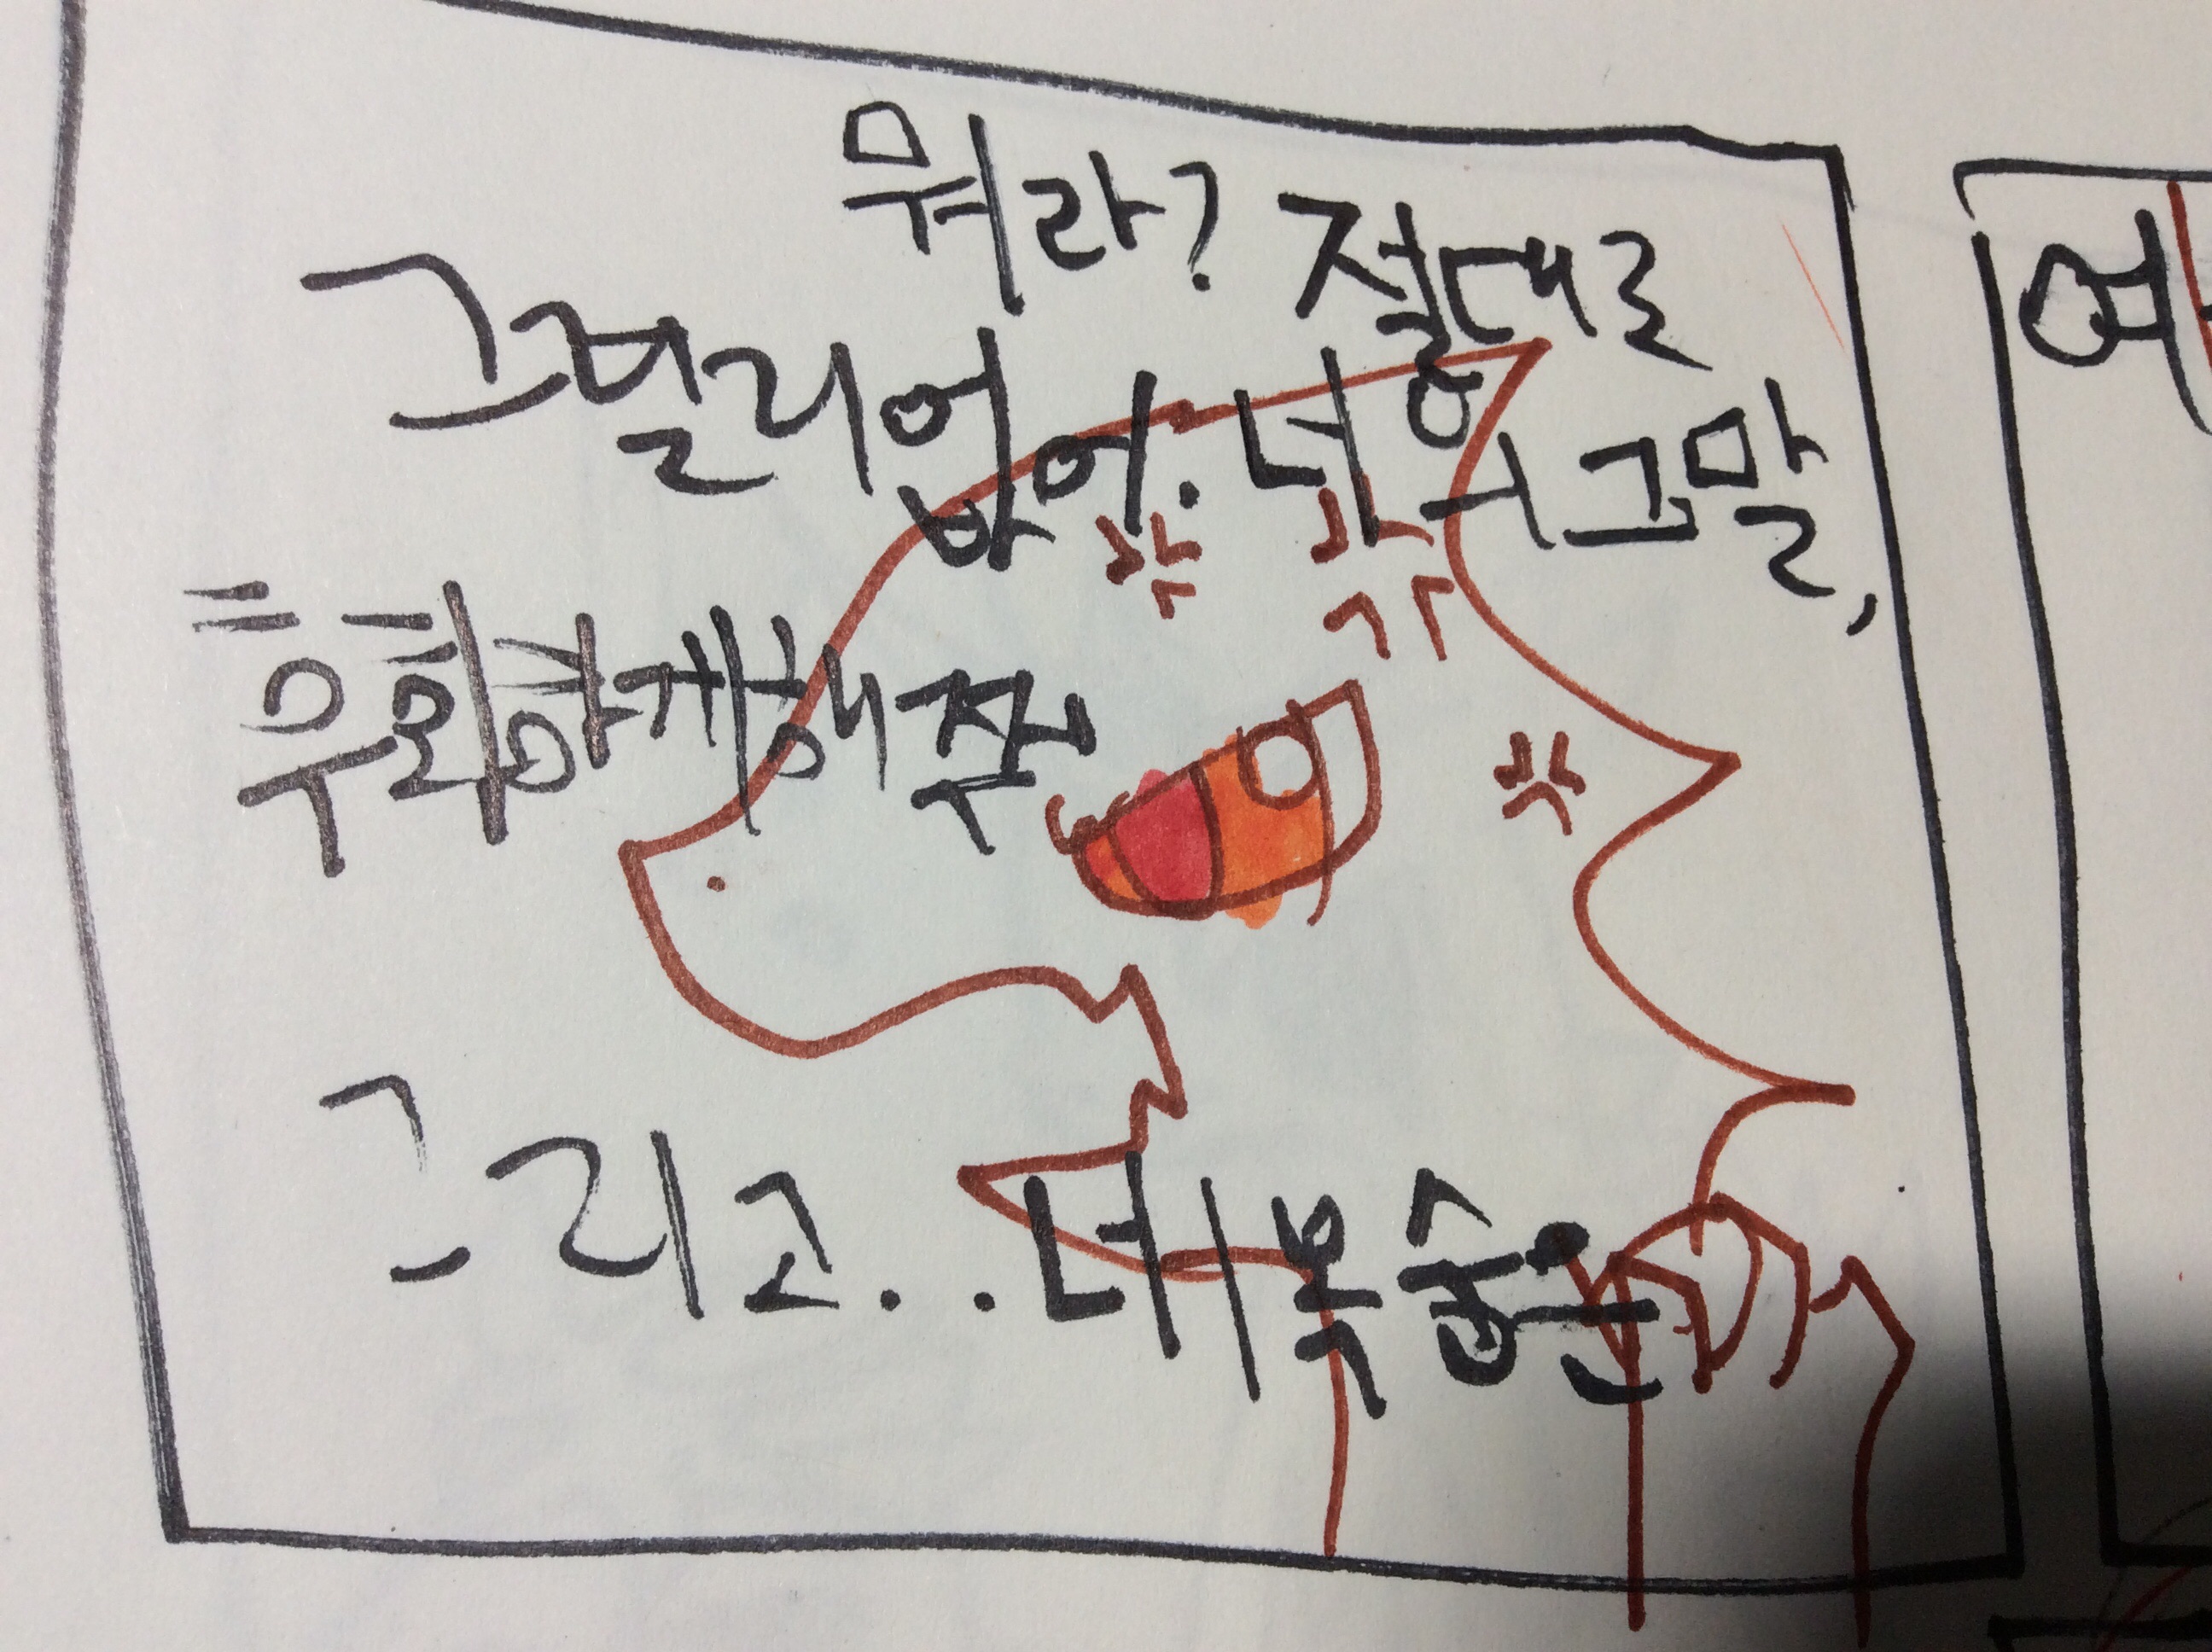 뭐라? 절대로
그럴리없어. 너 그말,
후회하게해주
그리고.. 네 복종은
여